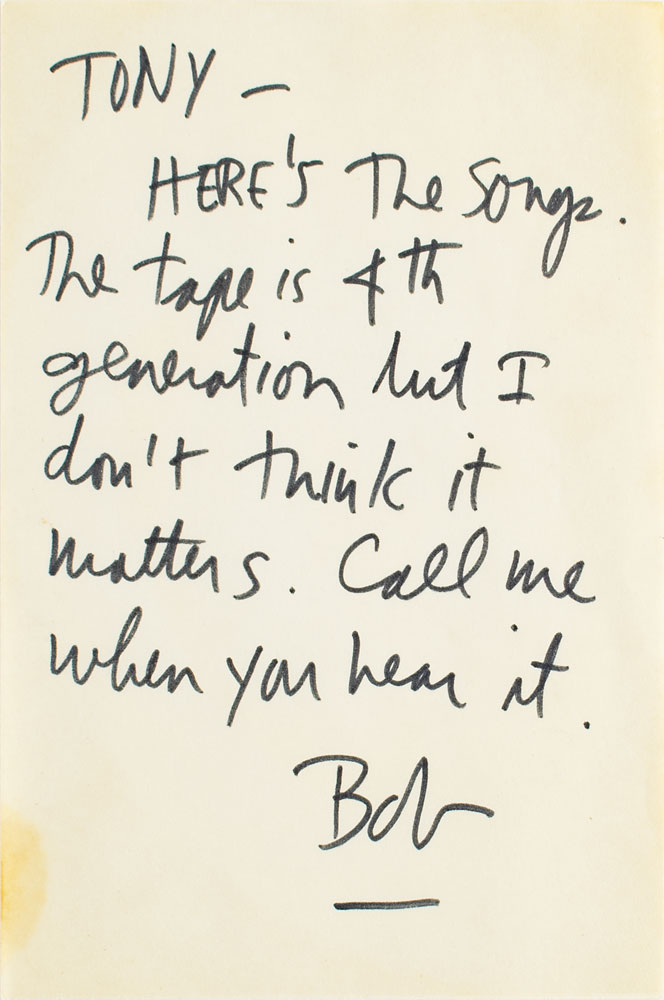 TONY –
HERE'S The Songs.
The tape is 4th
generation but I
don't think it
matters. Call me
when you hear it.
Bob